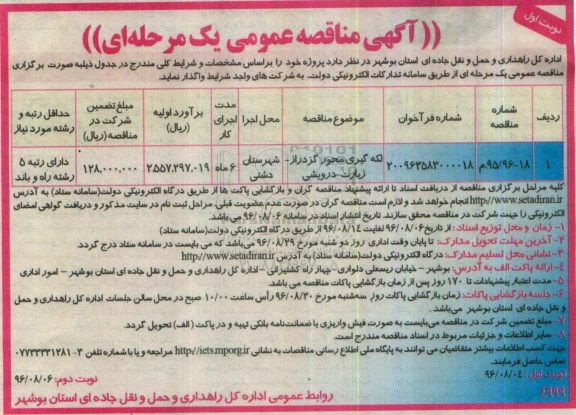 نوبت اول
((آگهی مناقصه عمومی یک مرحله‌ای))
اداره کل راهداری و حمل و نقل جاده ای استان بوشهر در نظر دارد پروژه خود را براساس مشخصات و شرایط کلی مندرج در جدول ذیل به صورت برگزاری
مناقصه عمومی یک مرحله ای از طریق سامانه تدارکات الکترونیکی دولت، به شرکت های واجد شرایط واگذار نماید.
ردیف | شماره مناقصه | شماره فرآخوان | موضوع مناقصه | محل اجرا | مدت اجرای کار | برآورد اولیه (ریال) | مبلغ تضمین شرکت در مناقصه (ریال) | حداقل رتبه و رشته مورد نیاز
۱ | ۹۵/۹۶-۱۸م | ۲۰۰۹۶۳۵۸۳۰۰۰۰۱۸ | لکه گیری محور گزدراز- زیارت- درویشی | شهرستان دشتی | ۶ ماه | ۲۵۵۷،۲۹۷،۰۱۹ | ۱۲۸,۰۰۰,۰۰۰ | دارای رتبه ۵ رشته راه و باند
کلیه مراحل برگزاری مناقصه از دریافت اسناد تا ارائه پیشنهاد مناقصه گران و بازگشایی پاکت ها از طریق درگاه الکترونیکی دولت(سامانه ستاد) به آدرس
http//www.setadiran.ir انجام خواهد شد و لازم است مناقصه گران در صورت عدم عضویت قبلی، مراحل ثبت نام در سایت مذکور و دریافت گواهی امضای
الکترونیکی را جهت شرکت در مناقصه محقق سازند. تاریخ انتشار اسناد در سامانه ۹۶/۰۸/۰۶ می باشد.
۱- زمان و محل توزیع اسناد: از تاریخ ۹۶/۰۸/۰۶ لغایت ۹۶/۰۸/۱۴ از طریق درگاه الکترونیکی دولت(سامانه ستاد)
۲- آخرین مهلت تحویل مدارک: تا پایان وقت اداری روز دو شنبه مورخ ۹۶/۰۸/۲۹ می‌باشد که می بایست در سامانه ستاد درج گردد.
۳- نشانی محل تسلیم مدارک: درگاه الکترونیکی دولت(سامانه ستاد) به آدرس http//www.setadiran.ir
۴- ارائه پاکت الف به آدرس: بوشهر – خیابان ریسعلی دلواری- چهار راه کشتیرانی – اداره کل راهداری و حمل و نقل جاده ای استان بوشهر – امور اداری
۵- مدت اعتبار پیشنهادات تا ۱۷۰ روز پس از زمان بازگشایی پاکات مناقصه می باشد.
۶- جلسه بازگشایی پاکات: زمان بازگشایی پاکات روز سه‌شنبه مورخ ۹۶/۰۸/۳۰ رأس ساعت ۱۰/۰۰ صبح در محل سالن جلسات اداره کل راهداری و حمل
و نقل جاده ای استان بوشهر می‌باشد.
۷- مبلغ تضمین شرکت در مناقصه می‌بایست به صورت فیش واریزی یا ضمانت‌نامه بانکی تهیه و در پاکت (الف) تحویل گردد.
۸- سایر اطلاعات و جزئیات مربوط در اسناد مناقصه مندرج است.
جهت کسب اطلاعات بیشتر متقاضیان می توانند به پایگاه ملی اطلاع رسانی مناقصات به نشانی http//iets.mporg.ir مراجعه و یا با شماره تلفن ۳-۰۷۷۳۳۳۳۱۲۸۱
تماس حاصل فرمایند.
نوبت اول: ۹۶/۰۸/۰۴
نوبت دوم: ۹۶/۰۸/۰۶
۶۹۹۹
روابط عمومی اداره کل راهداری و حمل و نقل جاده ای استان بوشهر